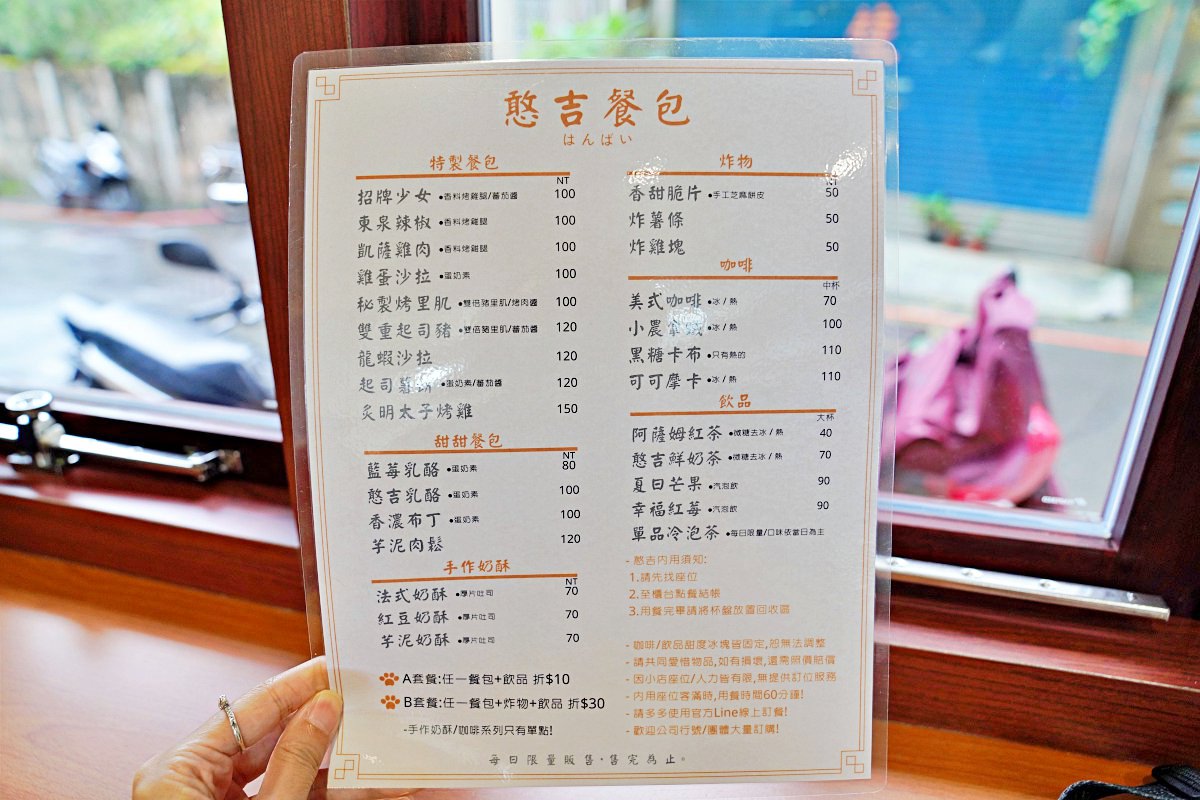 憨吉餐包
はんばい
特製餐包
NT
招牌少女 •香料烤雞腿/蕃茄醬 100
東泉辣椒 •香料烤雞腿 100
凱薩雞肉 •香料烤雞腿 100
雞蛋沙拉 •蛋奶素 100
秘製烤里肌 •雙倍豬里肌/烤肉醬 100
雙重起司豬 •雙倍豬里肌/蕃茄醬 120
龍蝦沙拉 120
起司薯 •蛋奶素/蕃茄醬 120
炙明太子烤雞 150
甜甜餐包
NT
藍莓乳酪 •蛋奶素 80
憨吉乳酪 •蛋奶素 100
香濃布丁 •蛋奶素 100
芋泥肉鬆 120
手作奶酥
NT
法式奶酥 •厚片吐司 70
紅豆奶酥 •厚片吐司 70
芋泥奶酥 •厚片吐司 70
A套餐:任一餐包+飲品 折$10
B套餐:任一餐包+炸物+飲品 折$30
-手作奶酥/咖啡系列只有單點!
炸物
NT
香甜脆片 •手工芝麻餅皮 50
炸薯條 50
炸雞塊 50
咖啡
中杯
美式咖啡 •冰/熱 70
小農 •冰/熱 100
黑糖卡布 •只有熱的 110
可可摩卡 •冰/熱 110
飲品
大杯
阿薩姆紅茶 •微糖去冰/熱 40
憨吉鮮奶茶 •微糖去冰/熱 70
夏日芒果 •汽泡飲 90
幸福紅莓 •汽泡飲 90
單品冷泡茶 •每日限量/口味依當日為主
- 憨吉內用須知:
1.請先找座位
2.至櫃台點餐結帳
3.用餐完畢請將杯盤放置回收區
- 咖啡/飲品甜度冰塊皆固定,恕無法調整
- 請共同愛惜物品,如有損壞,還需照價賠償
- 因小店座位/人力皆有限,無提供訂位服務
- 內用座位客滿時,用餐時間60分鐘!
- 請多多使用官方Line線上訂餐!
- 歡迎公司行號/團體大量訂購!
每日限量販售·售完為止。